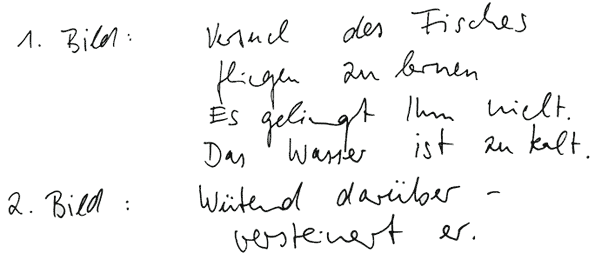 1. Bild: Versuch des Fisches
fliegen zu lernen
Es gelingt Ihm nicht.
Das Wasser ist zu kalt.
2. Bild: Wütend darüber -
versteinert er.